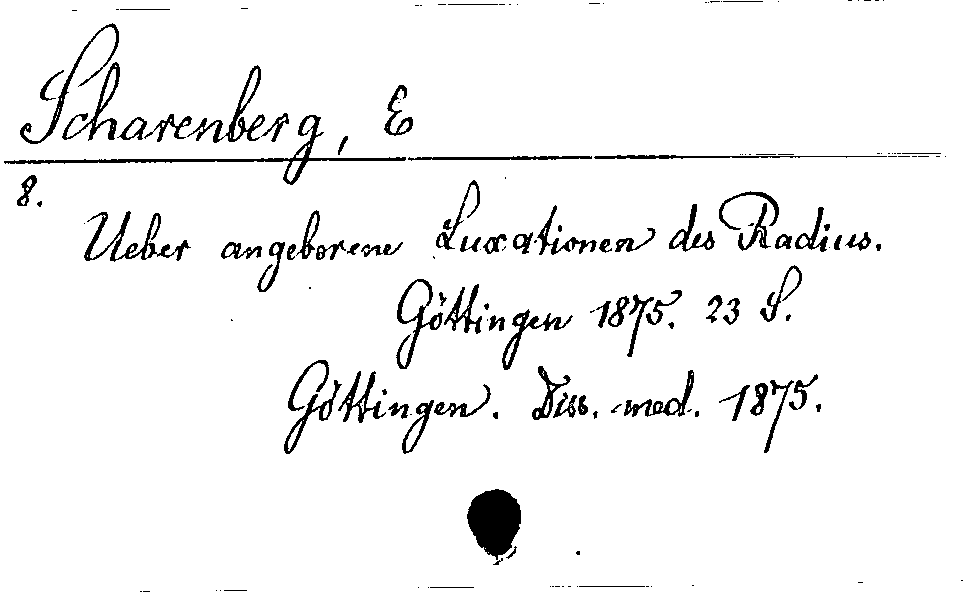 Scharenberg, E
8.
Ueber angeborene Luxationen des Radius.
Göttingen 1875. 23 S.
Göttingen. Diss. med. 1875.